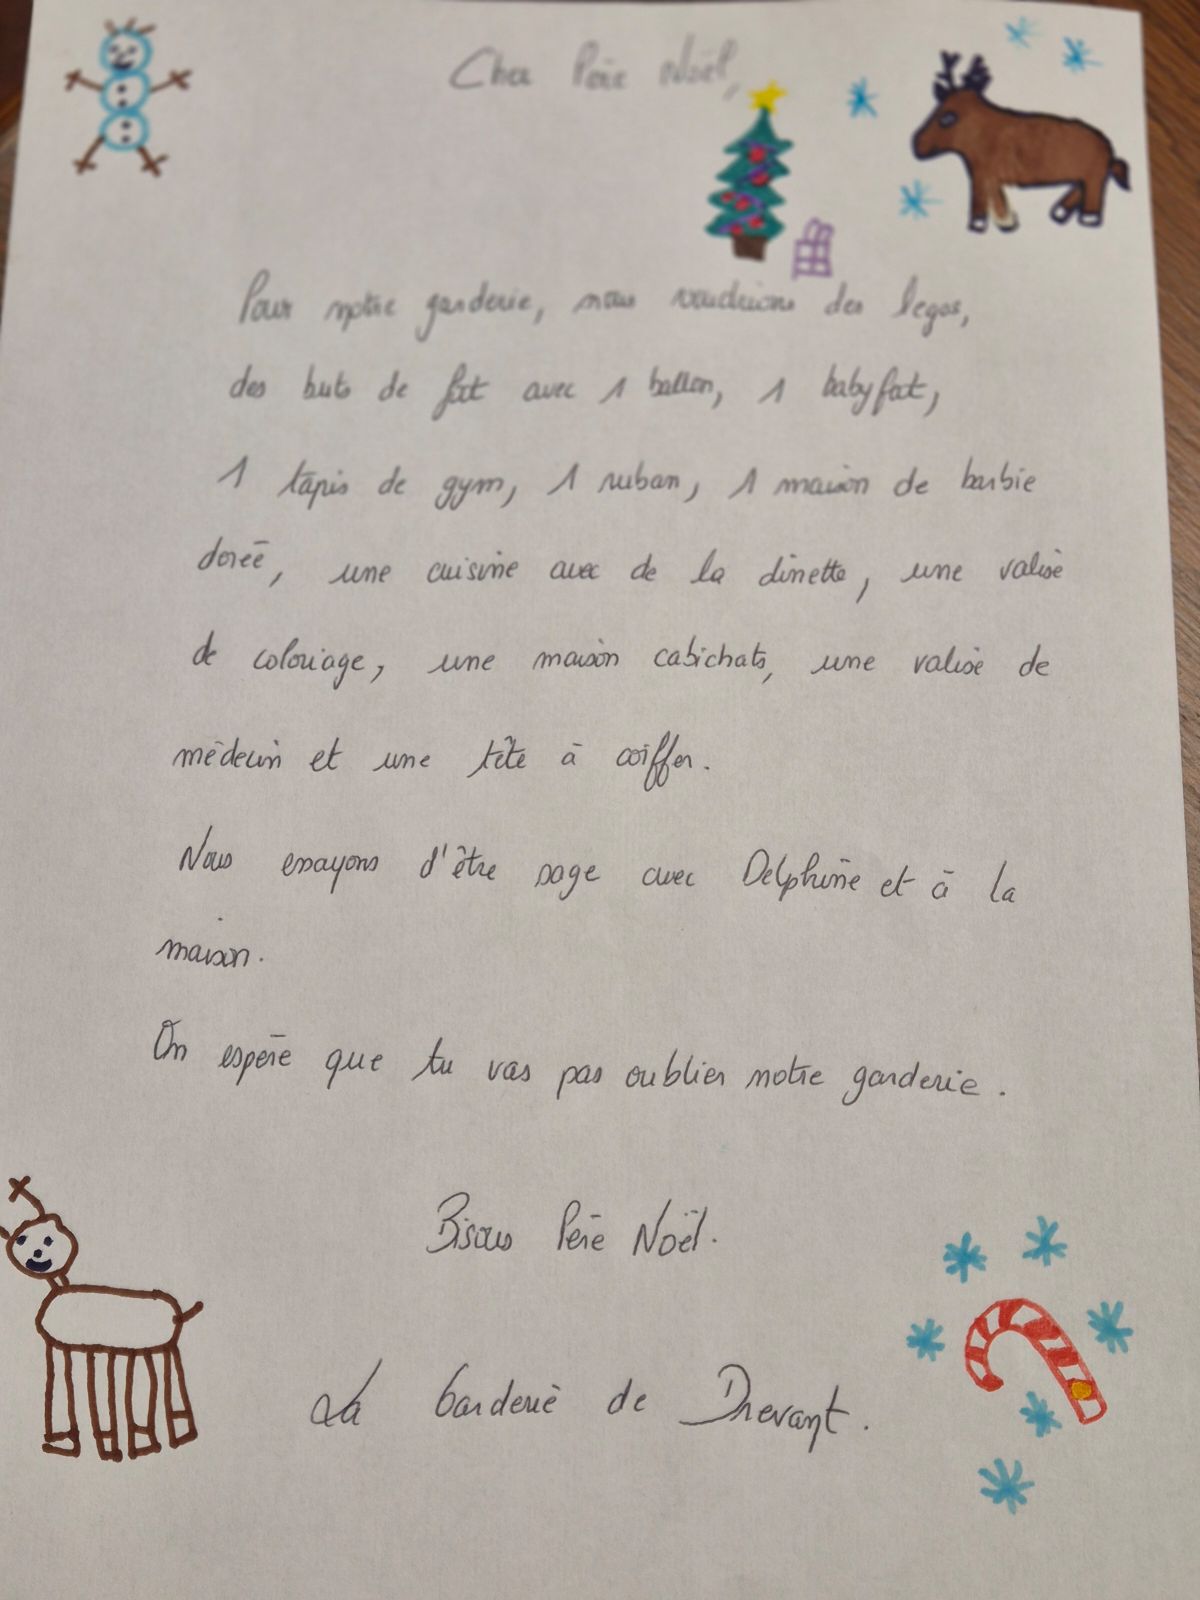 Cher Père Noël,
Pour notre garderie, nous voudrions des legos,
des buts de foot avec 1 ballon, 1 babyfoot,
1 tapis de gym, 1 ruban, 1 maison de barbie
dorée, une cuisine avec de la dinette, une valise
de coloriage, une maison cabichats, une valise de
médecin et une tête à coiffer.
Nous essayons d'être sage avec Delphine et à la
maison.
On espère que tu vas pas oublier notre garderie.
Bisous Père Noël.
La Garderie de Drevant.